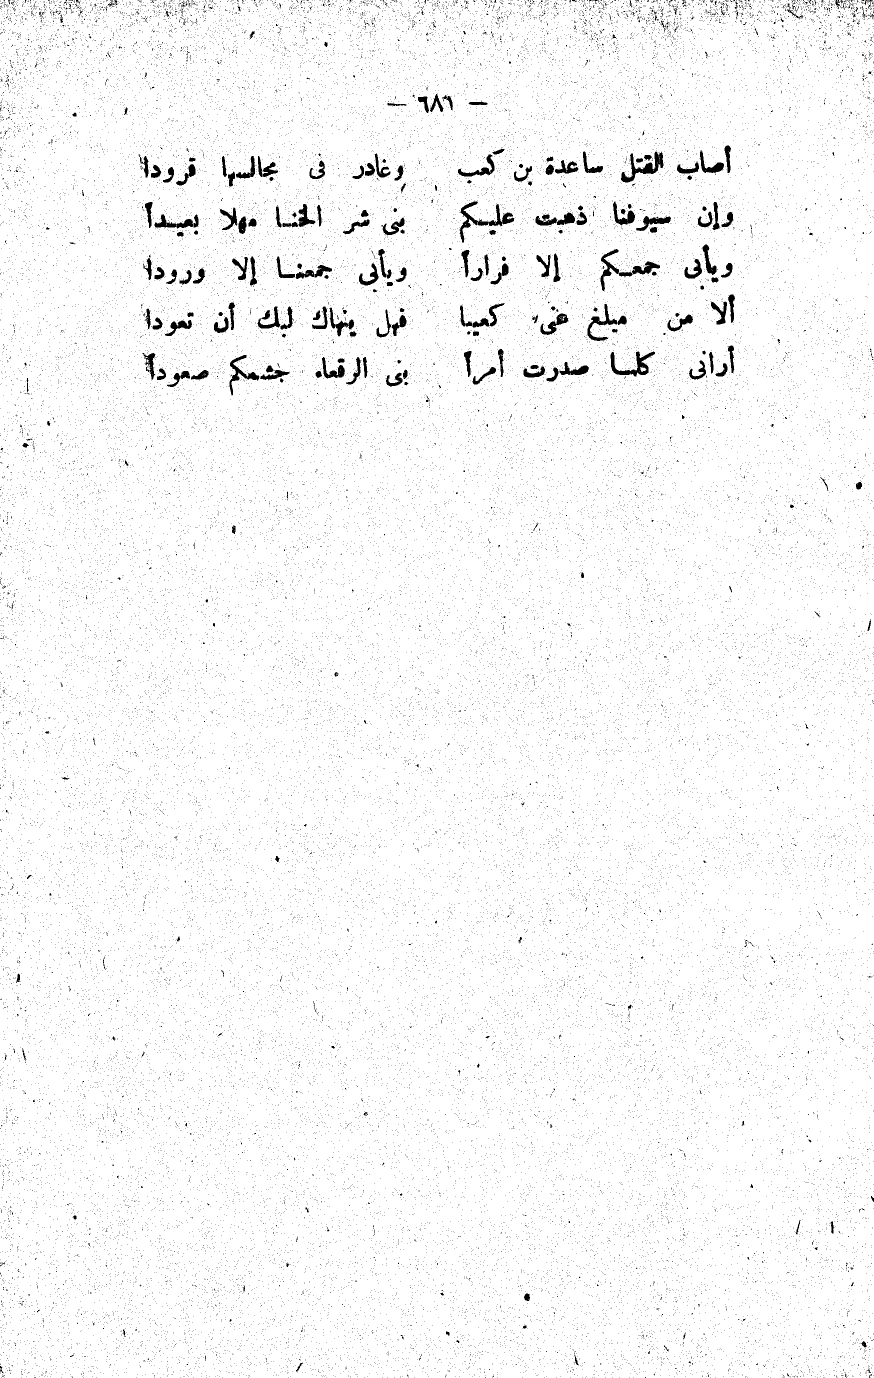 — ٦٨٦ —
أصاب القتل ساعدة بن كعب وغادر فى مجالسها قرودا
وإن سيوفنا ذهبت عليكم بنى شر الخنا مهلا بعيداً
ويأبى جمعكم إلا فراراً ويأبى جمعنا إلا ورودا
ألا من مبلغ عنى كعيبا فهل ينهاك لبك أن تعودا
أرانى كلما صدرت أمراً بنى الرقعاء جشمكم صعوداً